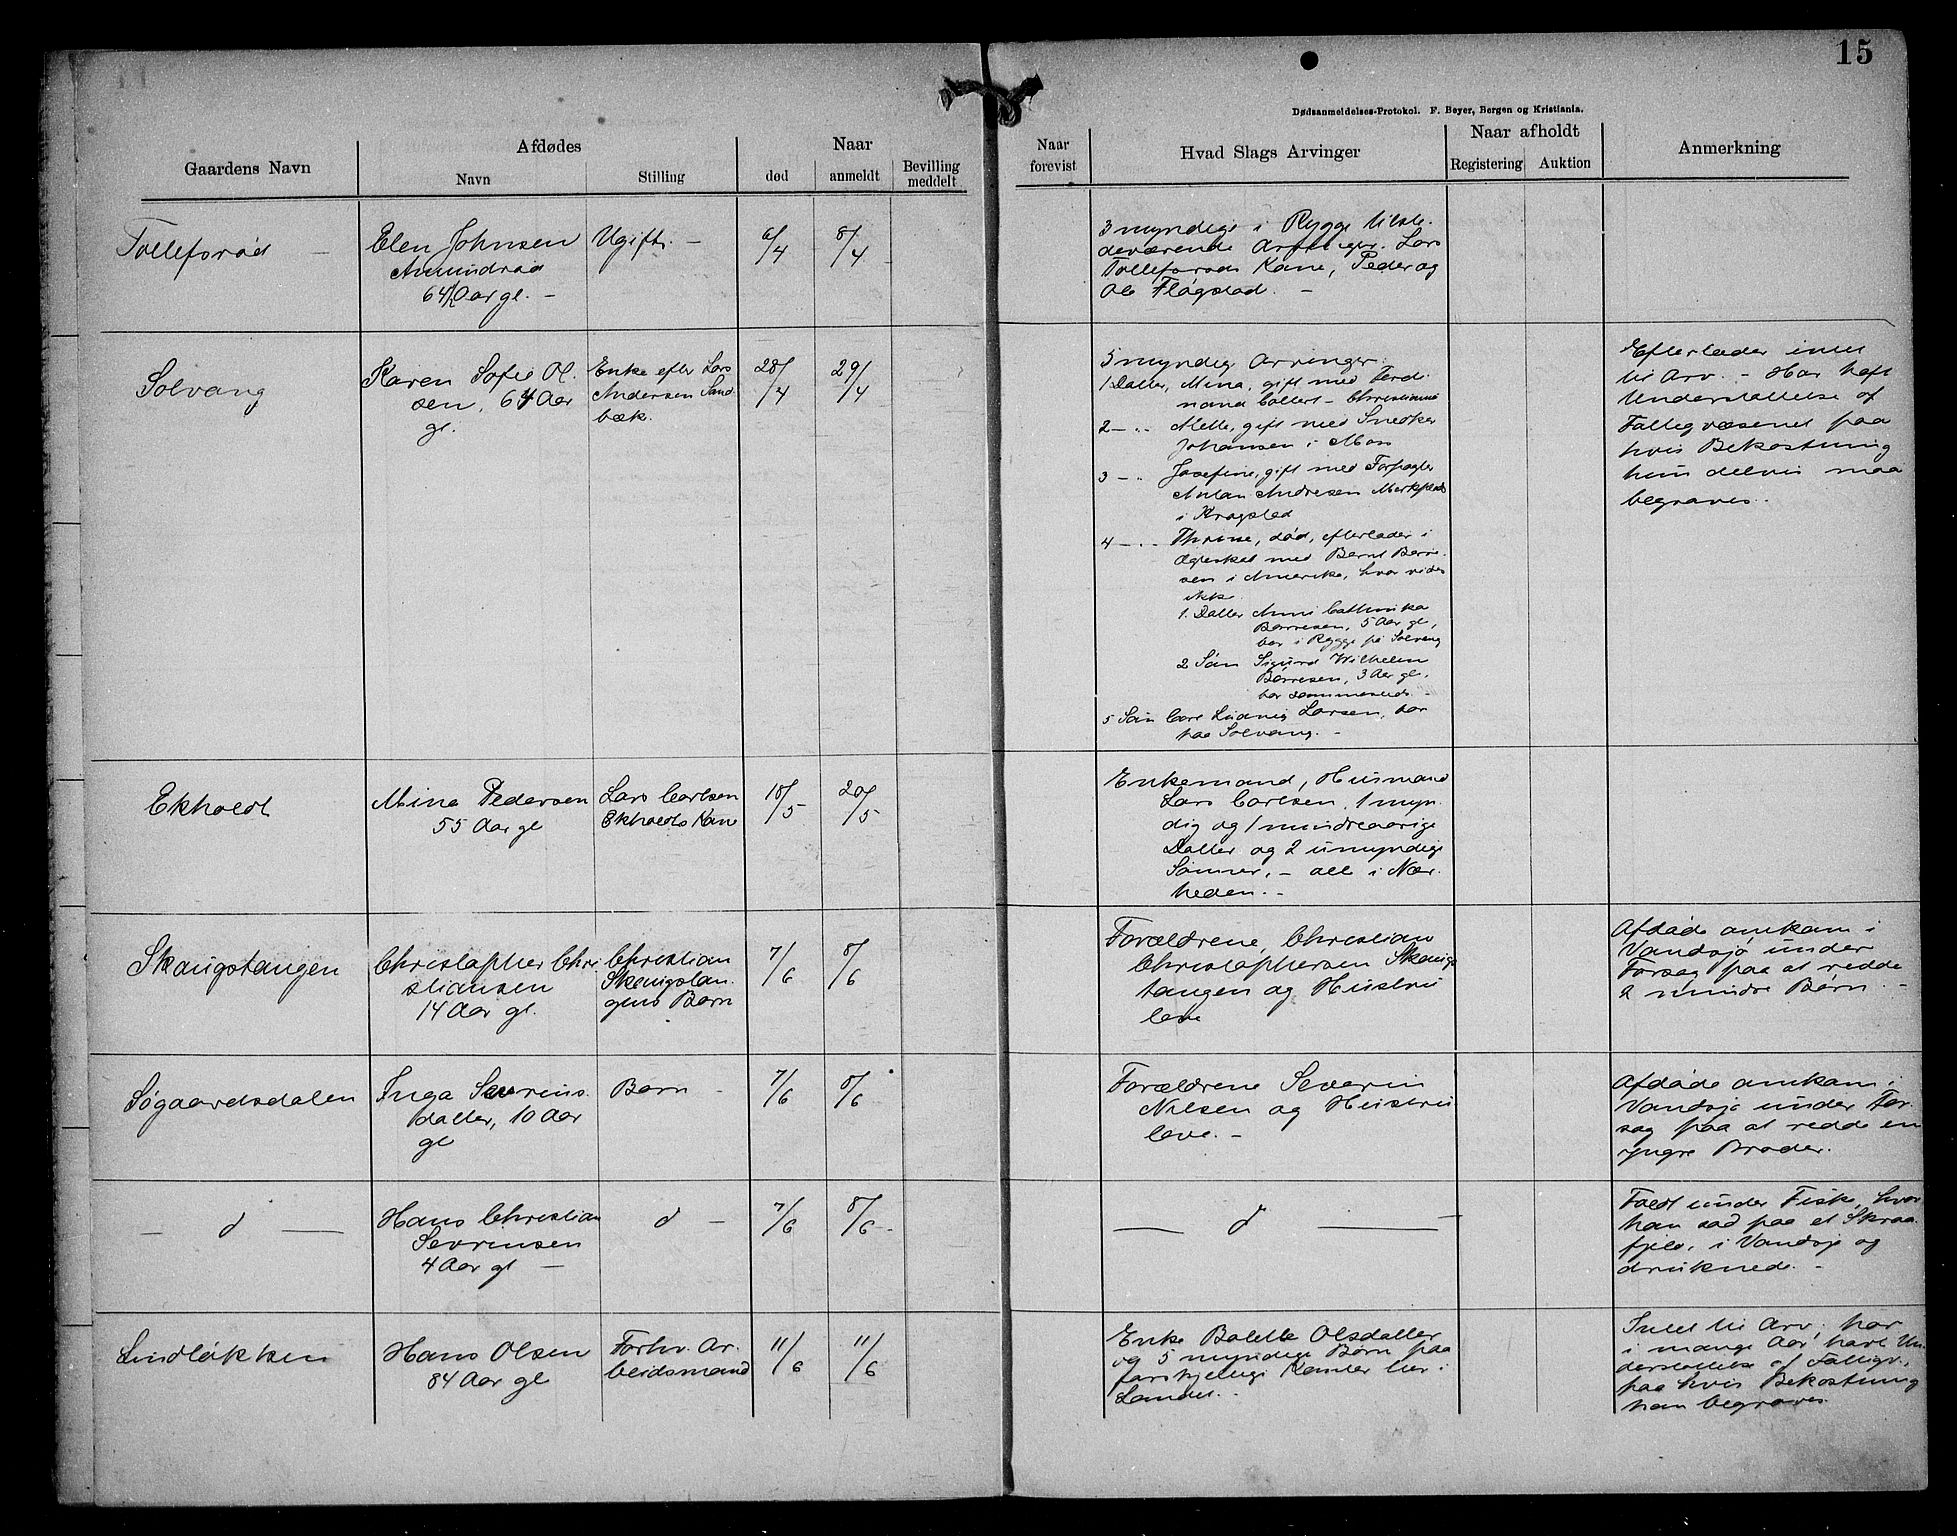 15
Dødsanmeldelses-Protokol. F. Beyer, Bergen og Kristiania.
Gaardens Navn
Afdødes
Navn
Stilling
Naar
død
anmeldt
Bevilling
meddelt
Naar
forevist
Hvad Slags Arvinger
Naar afholdt
Registering
Auktion
Anmerkning
Tolleforød
Elen Johnsen
Amundrød
64 Aar gl. –
Ugift. –
6/4
8/4
3 myndige i Rygge tilste-
deværende Arvinger. Lars
Tolleforøds Kone, Peder og
Ole Fløgstad. –
Solvang
Karen Sofie Ol-
sen, 64 Aar
gl.
Enke efter Lars
Andersen Sand-
bæk.
28/4
29/4
5 myndige Arvinger:
1 Datter, Mina, gift med Ferdi-
nand Collert – Christiania
2 – .. Mette, gift med Snedker
Johansen i Moss
3 – .. Josefine, gift med Forpagter
Anton Andresen
i Kragstad
4 – .. Thrine, død, efterlader i
Ægteskab med Bernt Børre-
sen i Amerika, hvor vides
ikke
1. Datter Anni Cathinka
Børresen, 5 Aar gl.,
bor i Rygge på Solvang
2 Søn Sigurd Wilhelm
Børresen, 3 Aar gl.,
bor sammesteds. –
5 Søn Carl Ludvig Larsen, bor
paa Solvang. –
Efterlader intet
til Arv. – Har haft
Understøttelse af
Fattigvæsenet paa
hvis Bekostning
hun delvis maa
begraves.
Ekholdt
Mina Pedersen
55 Aar gl
Lars Carlsen
Ekholdts Kone
18/5
20/5
Enkemand, Husmand
Lars Carlsen, 1 myn-
dig og 1 mindreaarige
Datter og 2 umyndige
Sønner, – alle i Nær-
heden. –
Skaugstangen
Christopher Chri
stiansen
14 Aar gl.
Christian
Skaugstan-
gens Barn
7/6
8/6
Forældrene, Christian
Christophersen Skaugs
tangen og Hustru
leve
Afdøde omkom i
Vandsjø under
Forsøg paa at redde
2 mindre Børn. –
Søgaardsdalen
Inga Severins-
datter, 10 Aar
gl
Barn –
7/6
8/6
Forældrene Severin
Nilsen og Hustru
leve. –
Afdøde omkom i
Vandsjø under For-
søg paa at redde en
yngre Broder.
– d –
Hans Christian
Sevrinsen
4 Aar gl –
d –
7/6
8/6 –
– d –
Faldt under Fiske, hvor
han sad paa et Skraa-
fjeld, i Vandsjø og
druknede. –
Lindløkken
Hans Olsen
84 Aar gl
Forhv. Ar-
beidsmand
11/6
11/6
Enke Bolette Olsdatter
og 5 myndige Børn paa
forskjellige Kanter her i
Landet. –
Intet til Arv; har
i mange Aar havt Un-
derstøttelse af Fattigv.,
paa hvis Bekostning
han begraves.